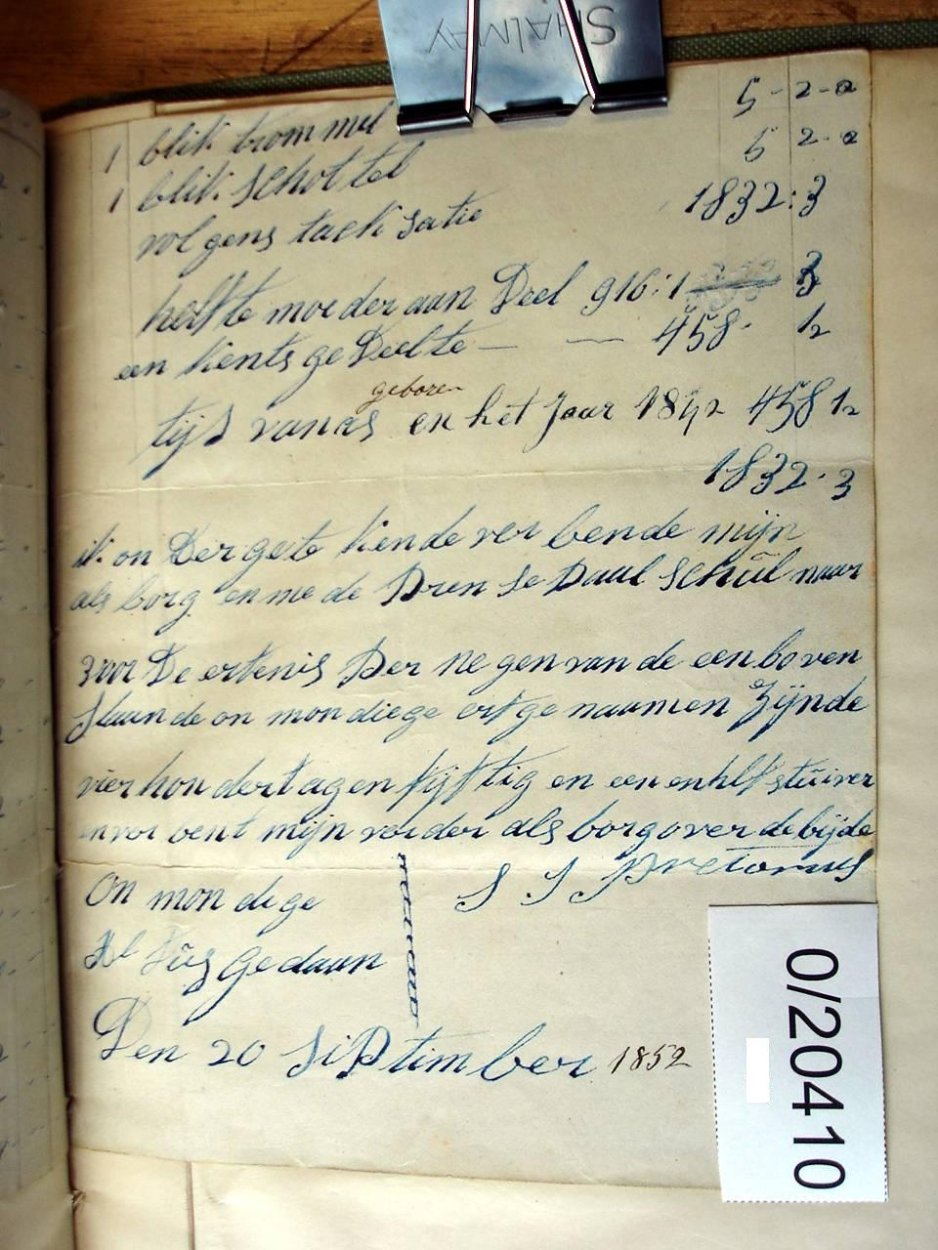 SHALMAY
1 blik trommel 5 - 2 - a
1 blik schottel 5 2 - a
volgens tack satie 1832:3
helfte moeder aan Deel 916:1 3
een kents ge Deelte — — 458 - 1/2
geboren
tijs vanas en het Jaar 1842 458 1/2
1832 - 3
ik on Der gete kende ver bende mijn
als borg en me de Dren se Daul schül naar
voor De erfenis Der ne gen van de een bo ven
staande on mondiege erf ge naamen Zijnde
vier hon dert agen fijftig en een enhlf stüiver
en ver bent mijn verder als borg over de bijde
On mon dege S S Pretorius
Al düs gedaan
Den 20 SiPtimber 1852
0/20410